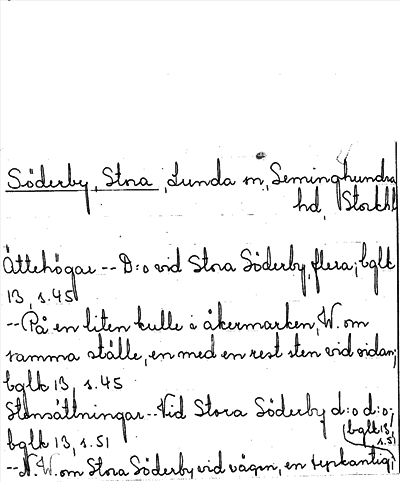 Söderby, Stora, Lunda sn, Seminghundra
hd, Stockhl
Ättehögar -- D:o vid Stora Söderby, flera; bglk
13, s. 45
-- På en liten kulle i åkermarken, W. om
samma ställe, en med en rest sten vid sidan;
bglk 13, s. 45
Stensättningar -- Vid Stora Söderby d:o d:o;
bglk 13, s. 51
bglk 13,
s. 51
-- N.W. om Stora Söderby vid vägen, en fyrkantig;